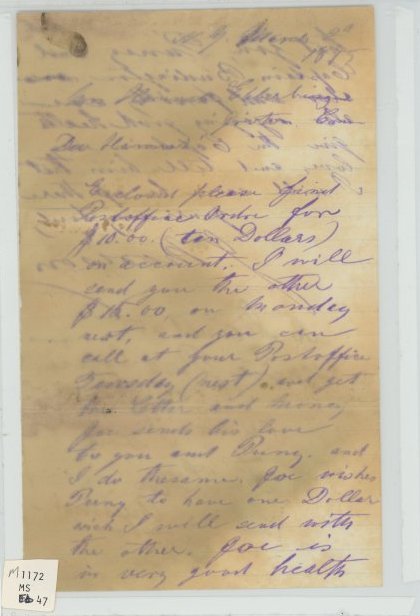 N. Y. March
187
Mrs. Hannah Ebierbing
Groton Conn
Dear Hannah
Enclosed please find
Postoffice Order for
$10.00. (ten Dollars)
on account. I will
send you the other
on Monday
next, and you can
call at your Postoffice
Tuesday (next), and get
the letter and money
Joe sends his love
to you and Puny. and
I do thesame. Joe wishes
Puny to have one Dollar
wich I will send with
the other. Joe is
in very good health
M1172
MS
47